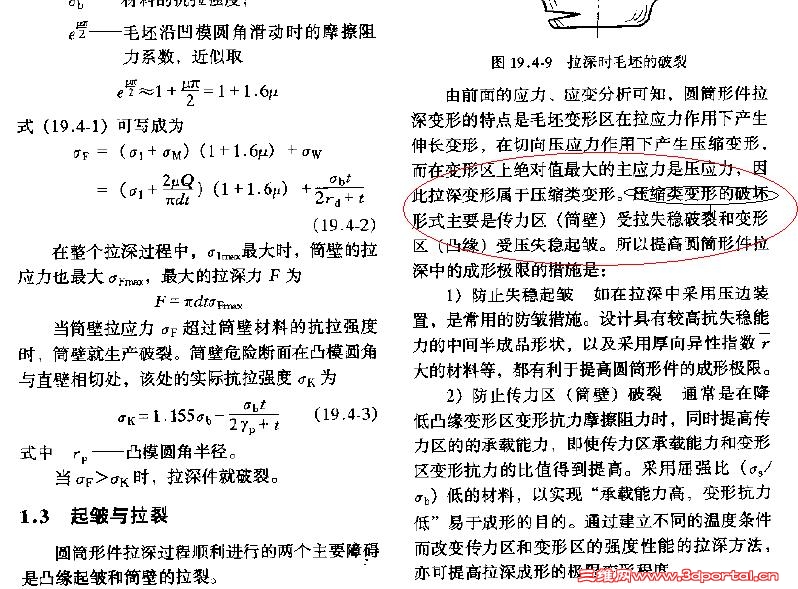 σb 材料的抗拉强度;
e^(μπ/2)——毛坯沿凹模圆角滑动时的摩擦阻
力系数，近似取
e^(μπ/2)≈1+μπ/2=1+1.6μ
式（19.4-1）可写成为
σF = （σ1+σM）（1+1.6μ）+σW
= （σ1+2μQ/πdt）（1+1.6μ）+σbt/(2rd+t)
（19.4-2）
在整个拉深过程中，σ1max最大时，筒壁的拉
应力也最大σFmax，最大的拉深力 F 为
F=πdtσFmax
当筒壁拉应力 σF 超过筒壁材料的抗拉强度
时，筒壁就生产破裂。筒壁危险断面在凸模圆角
与直壁相切处，该处的实际抗拉强度 σK 为
σK=1.155σb-σbt/(2γp+t) （19.4-3）
式中 rp——凸模圆角半径。
当 σF>σK 时，拉深件就破裂。
1.3 起皱与拉裂
圆筒形件拉深过程顺利进行的两个主要障碍
是凸缘起皱和筒壁的拉裂。
图 19.4-9 拉深时毛坯的破裂
由前面的应力、应变分析可知，圆筒形件拉
深变形的特点是毛坯变形区在拉应力作用下产生
伸长变形，在切向压应力作用下产生压缩变形，
而在变形区上绝对值最大的主应力是压应力，因
此拉深变形属于压缩类变形。压缩类变形的破坏
形式主要是传力区（筒壁）受拉失稳破裂和变形
区（凸缘）受压失稳起皱。所以提高圆筒形件拉
深中的成形极限的措施是：
1）防止失稳起皱 如在拉深中采用压边装
置，是常用的防皱措施。设计具有较高抗失稳能
力的中间半成品形状，以及采用厚向异性指数 r̄
大的材料等，都有利于提高圆筒形件的成形极限。
2）防止传力区（筒壁）破裂 通常是在降
低凸缘变形区变形抗力摩擦阻力时，同时提高传
力区的的承载能力，即使传力区承载能力和变形
区变形抗力的比值得到提高。采用屈强比（σs/
σb）低的材料，以实现“承载能力高，变形抗力
低”易于成形的目的。通过建立不同的温度条件
而改变传力区和变形区的强度性能的拉深方法，
亦可提高拉深成形的极限变形程度
三维网www.3dportal.cn